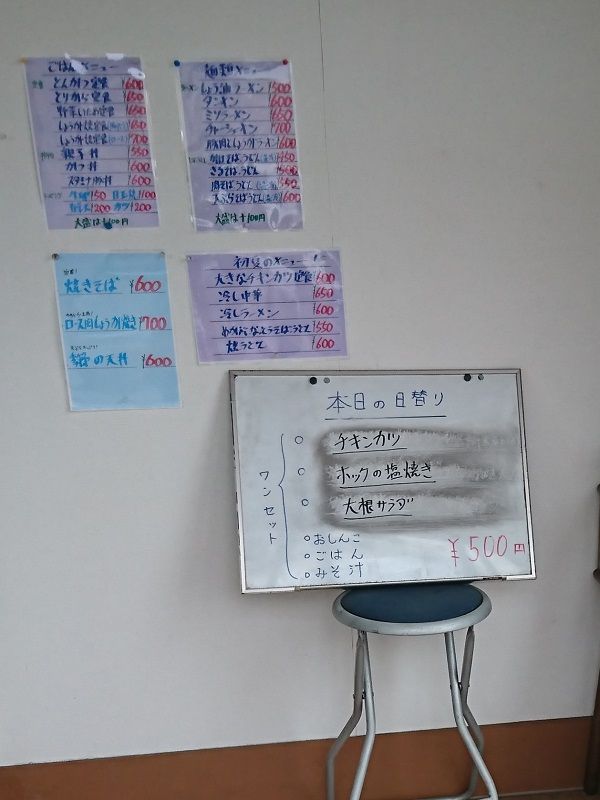 ごはんメニュー
とんかつ定食 ¥600
とりから定食 ¥650
野菜いため定食 ¥650
しょうが焼定食 ¥650
しょうが焼定食(ロース) ¥700
親子丼 ¥550
かつ丼 ¥600
スタミナ丼 ¥600
¥150 目玉 ¥100
¥200 カツ ¥200
大盛は+100円
麺類メニュー
ラーメン しょう油ラーメン ¥500
タンメン ¥600
ミソラーメン ¥650
チャーシューメン ¥700
豚肉しょうがラーメン ¥600
かけそば、うどん ¥450
ざるそば、うどん ¥500
肉そば、うどん ¥550
天ぷらそば、うどん ¥600
大盛は+100円
焼きそば ¥600
ロース肉しょうが焼き ¥700
の天丼 ¥600
初夏のメニュー
大きなチキンカツ定食 ¥600
冷し中華 ¥650
冷しラーメン ¥600
めかぶ、なっとうそば、うどん ¥550
焼うどん ¥600
本日の日替り
ワンセット
○ チキンカツ
○ ホックの塩焼き
○ 大根サラダ
○おしんこ
○ごはん
○みそ汁
¥500円